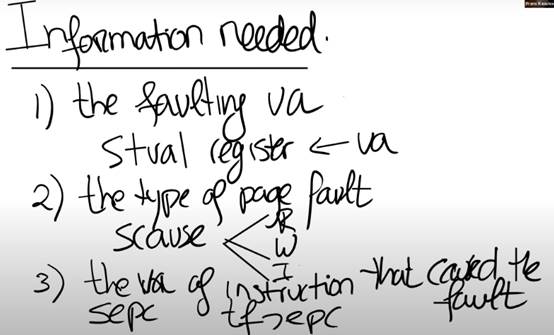 Information needed.
1) the faulting va
stval register ← va
2) the type of page fault
scause
R
W
I
3) the va of instruction that caused the fault
sepc tf->epc